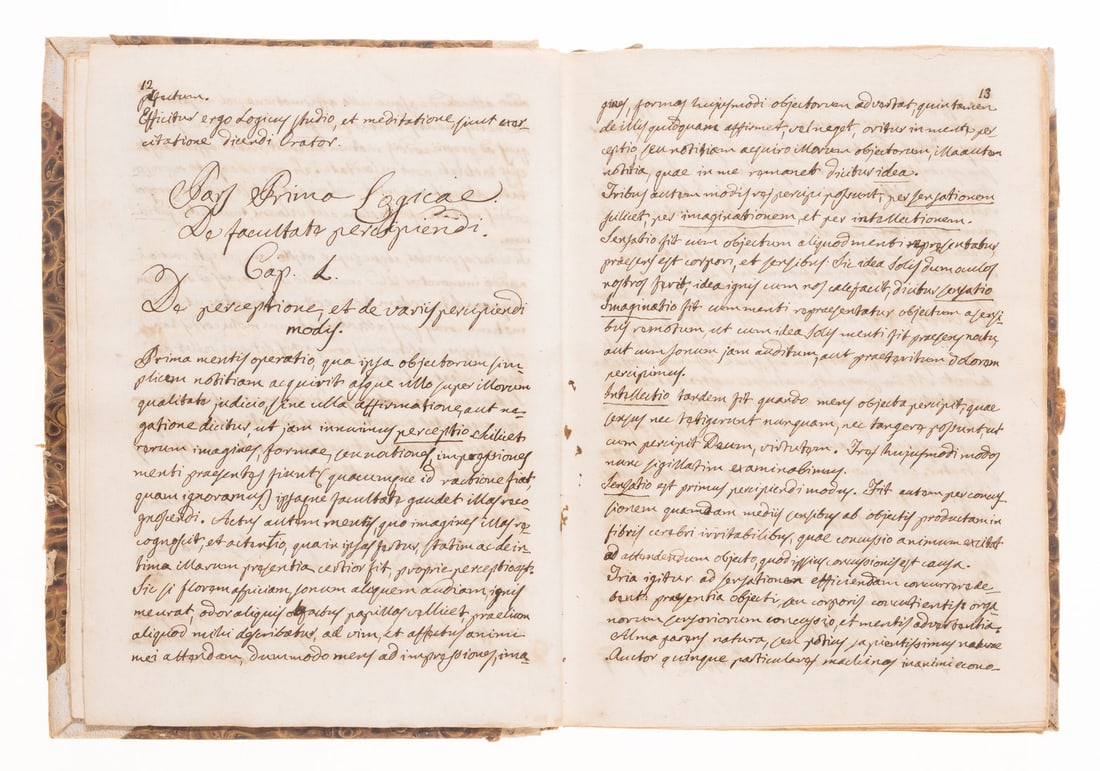 12
Efficitur ergo Logicus studio, et meditatione sicut exer-
citatione dicendi Orator.
Pars Prima Logicae.
De facultate percipiendi.
Cap. I.
De perceptione, et de variis percipiendi
modis.
Prima mentis operatio, qua ipsa objectorum sim-
plicem notitiam acquirit absque ullo super illorum
qualitate judicio, sine ulla affirmatione, aut ne-
gatione dicitur ut jam innuimus perceptio scilicet
rerum imagines, formae, seu notiones impressiones
menti praesentes fiunt, quacumque id ratione fiat,
quam ignoramus, ipsaque facultate gaudet illas reco-
gnoscendi. Actus autem mentis, quo imagines illas re-
cognoscit, et actentio, qua in ipsas fertur, statim ac de in-
tima illarum presentia certior fit, proprie perceptio est.
Sic si florem aspiciam, sonum aliquem audiam, ignis
me urat, odor aliquis olfactus papillas vellicet, praelium
aliquod mihi describatur, ad vim, et affectus animi
mei attendam, dummodo mens ad impressiones, ima-
13
gines, formas hujusmodi objectorum advertat, quin tamen
de illis quidquam affirmet, vel neget, oritur in mente per
ceptio, seu notitiam acquiro illorum objectorum, illa autem
notitia, quae in me remanet dicitur idea.
Tribus autem modis res percipi possunt, per sensationem
scilicet, per imaginationem, et per intellectionem.
Sensatio fit cum objectum aliquod menti repraesentatur
praesens est corpori, et sensibus. Sic idea Solis dum oculos
nostros ferit, idea ignis cum nos calefacit, dicitur sensatio
Imaginatio fit cum menti repraesentatur objectum a sensi-
bus remotum ut cum idea Solis menti fit praesens noctu,
aut cum sonum jam auditum, aut praeteritum dolorem
percipimus.
Intellectio tandem fit quando mens objecta percipit, quae
sensus nec tetigerunt nunquam, nec tangere possunt, ut
cum percipit Deum, virtutem. Tres hujusmodi modos
nunc sigillatim examinabimus.
Sensatio est primus percipiendi modus. Fit autem per concus
sionem quamdam mediis sensibus ab objectis productam in
fibris cerebri irritabilibus, quae concussio animum excitat
ad attendendum objecto, quod ipsius concussionis est causa.
Tria igitur ad sensationem efficiendam concurrere de-
bent: praesentia objecti, seu corporis concutientis, orga
norum sensoriorum concussio, et mentis advertentia.
Alma parens natura, seu potius sapientissimus naturae
Auctor quinque particulares machinas in animi econo-